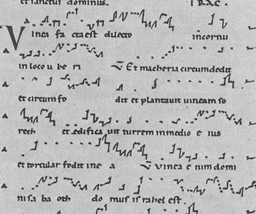 et sanctus dominus. TRAC.
Vinea facta est dilecto in cornu
in loco uberi V Et maceria circumdedit
et circumfo dit et plantavit vineam so
reth et edificavit turrem in medio e ius
et torcular fodit in e a V vinea e nim domi
ni sa ba oth do mus israhel est.